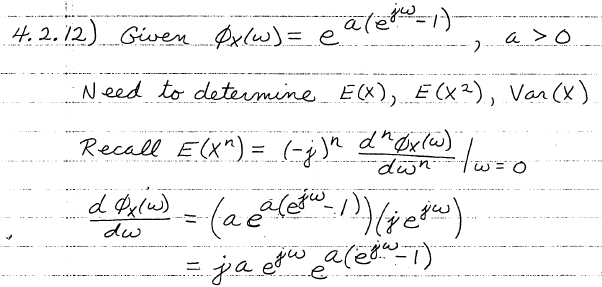 4.2.12) Given ϕₓ(ω) = e^{a(e^{jω}-1)}, a > 0
Need to determine E(X), E(X²), Var(X)
Recall E(Xⁿ) = (-j)ⁿ dⁿϕₓ(ω)/dωⁿ |_{ω=0}
dϕₓ(ω)/dω = (a e^{a(e^{jω}-1)})(j e^{jω})
= j a e^{jω} e^{a(e^{jω}-1)}